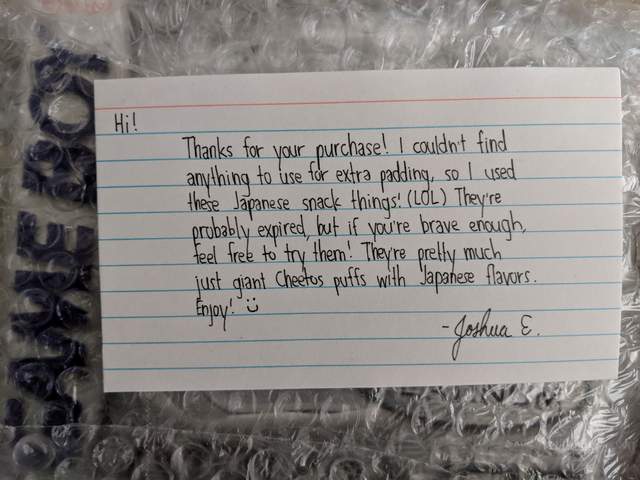 Hi!
Thanks for your purchase! I couldn't find
anything to use for extra padding, so I used
these Japanese snack things! (LOL) They're
probably expired, but if you're brave enough,
feel free to try them! They're pretty much
just giant Cheetos puffs with Japanese flavors.
Enjoy! :)
-Joshua E.